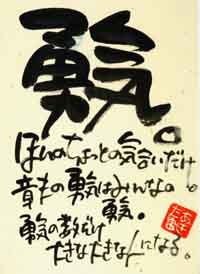 勇気。
ほんのちょっとの気合いだけ
貴方の勇気はみんなの
勇気。
勇気の数だけ
大きな大きな人になる。